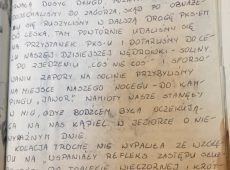 DOSYĆ DUGO
POJECHALIŚMY DO ZAGÓRZA, SKĄD PO OBIA
RUSZYLIŚMY W DALSZĄ DROGĘ PKS-EM
DO LESKA, TAM PONOWNIE UDALIŚMY SIĘ
NA PRZYSTANEK PKS-U I DOTARLIŚMY DO CE
LU NASZEJ DZISIEJSZEJ WĘDRÓWKI - SOLINY.
PO ZJEDZENIU „COŚ NIE COŚ" I SFORSO
WANIU ZAPORY NA SOLINIE PRZYBYLIŚMY
NA MIEJSCE NASZEGO NOCLEGU - DO KAM
PINGU „JAWOR". NAMIOTY NASZE STANĘŁY
W MIG, GDYŻ BODŹCEM BYŁA OCZEKUJĄ
CA NA NAS KĄPIEL W JEZIORZE O NIE-
WYRAŹNYM DNIE.
KOLACJA TROCHĘ NIE WYPALIŁA ZE WZGLĘ
DU NA „WSPANIAŁY REFLEKS ZASTĘPU
TOALECIE WIECZORNEJ I KRÓT